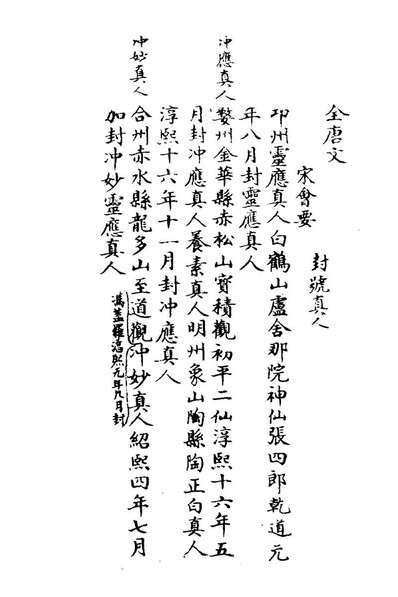 全唐文
封號真人
宋會要
邛州靈應真人白鶴山盧舍那院神仙張四郎乾道元
年八月封靈應真人
冲應真人
婺州金華縣赤松山寶積觀初平二仙淳熙十六年五
月封冲應真人養素真人明州象山陶縣陶正白真人
淳熙十六年十一月封冲應真人
冲妙真人
合州赤水縣龍多山至道觀冲妙真人紹熙四年七月
馮蓋羅淳熙元年八月封
加封冲妙靈應真人